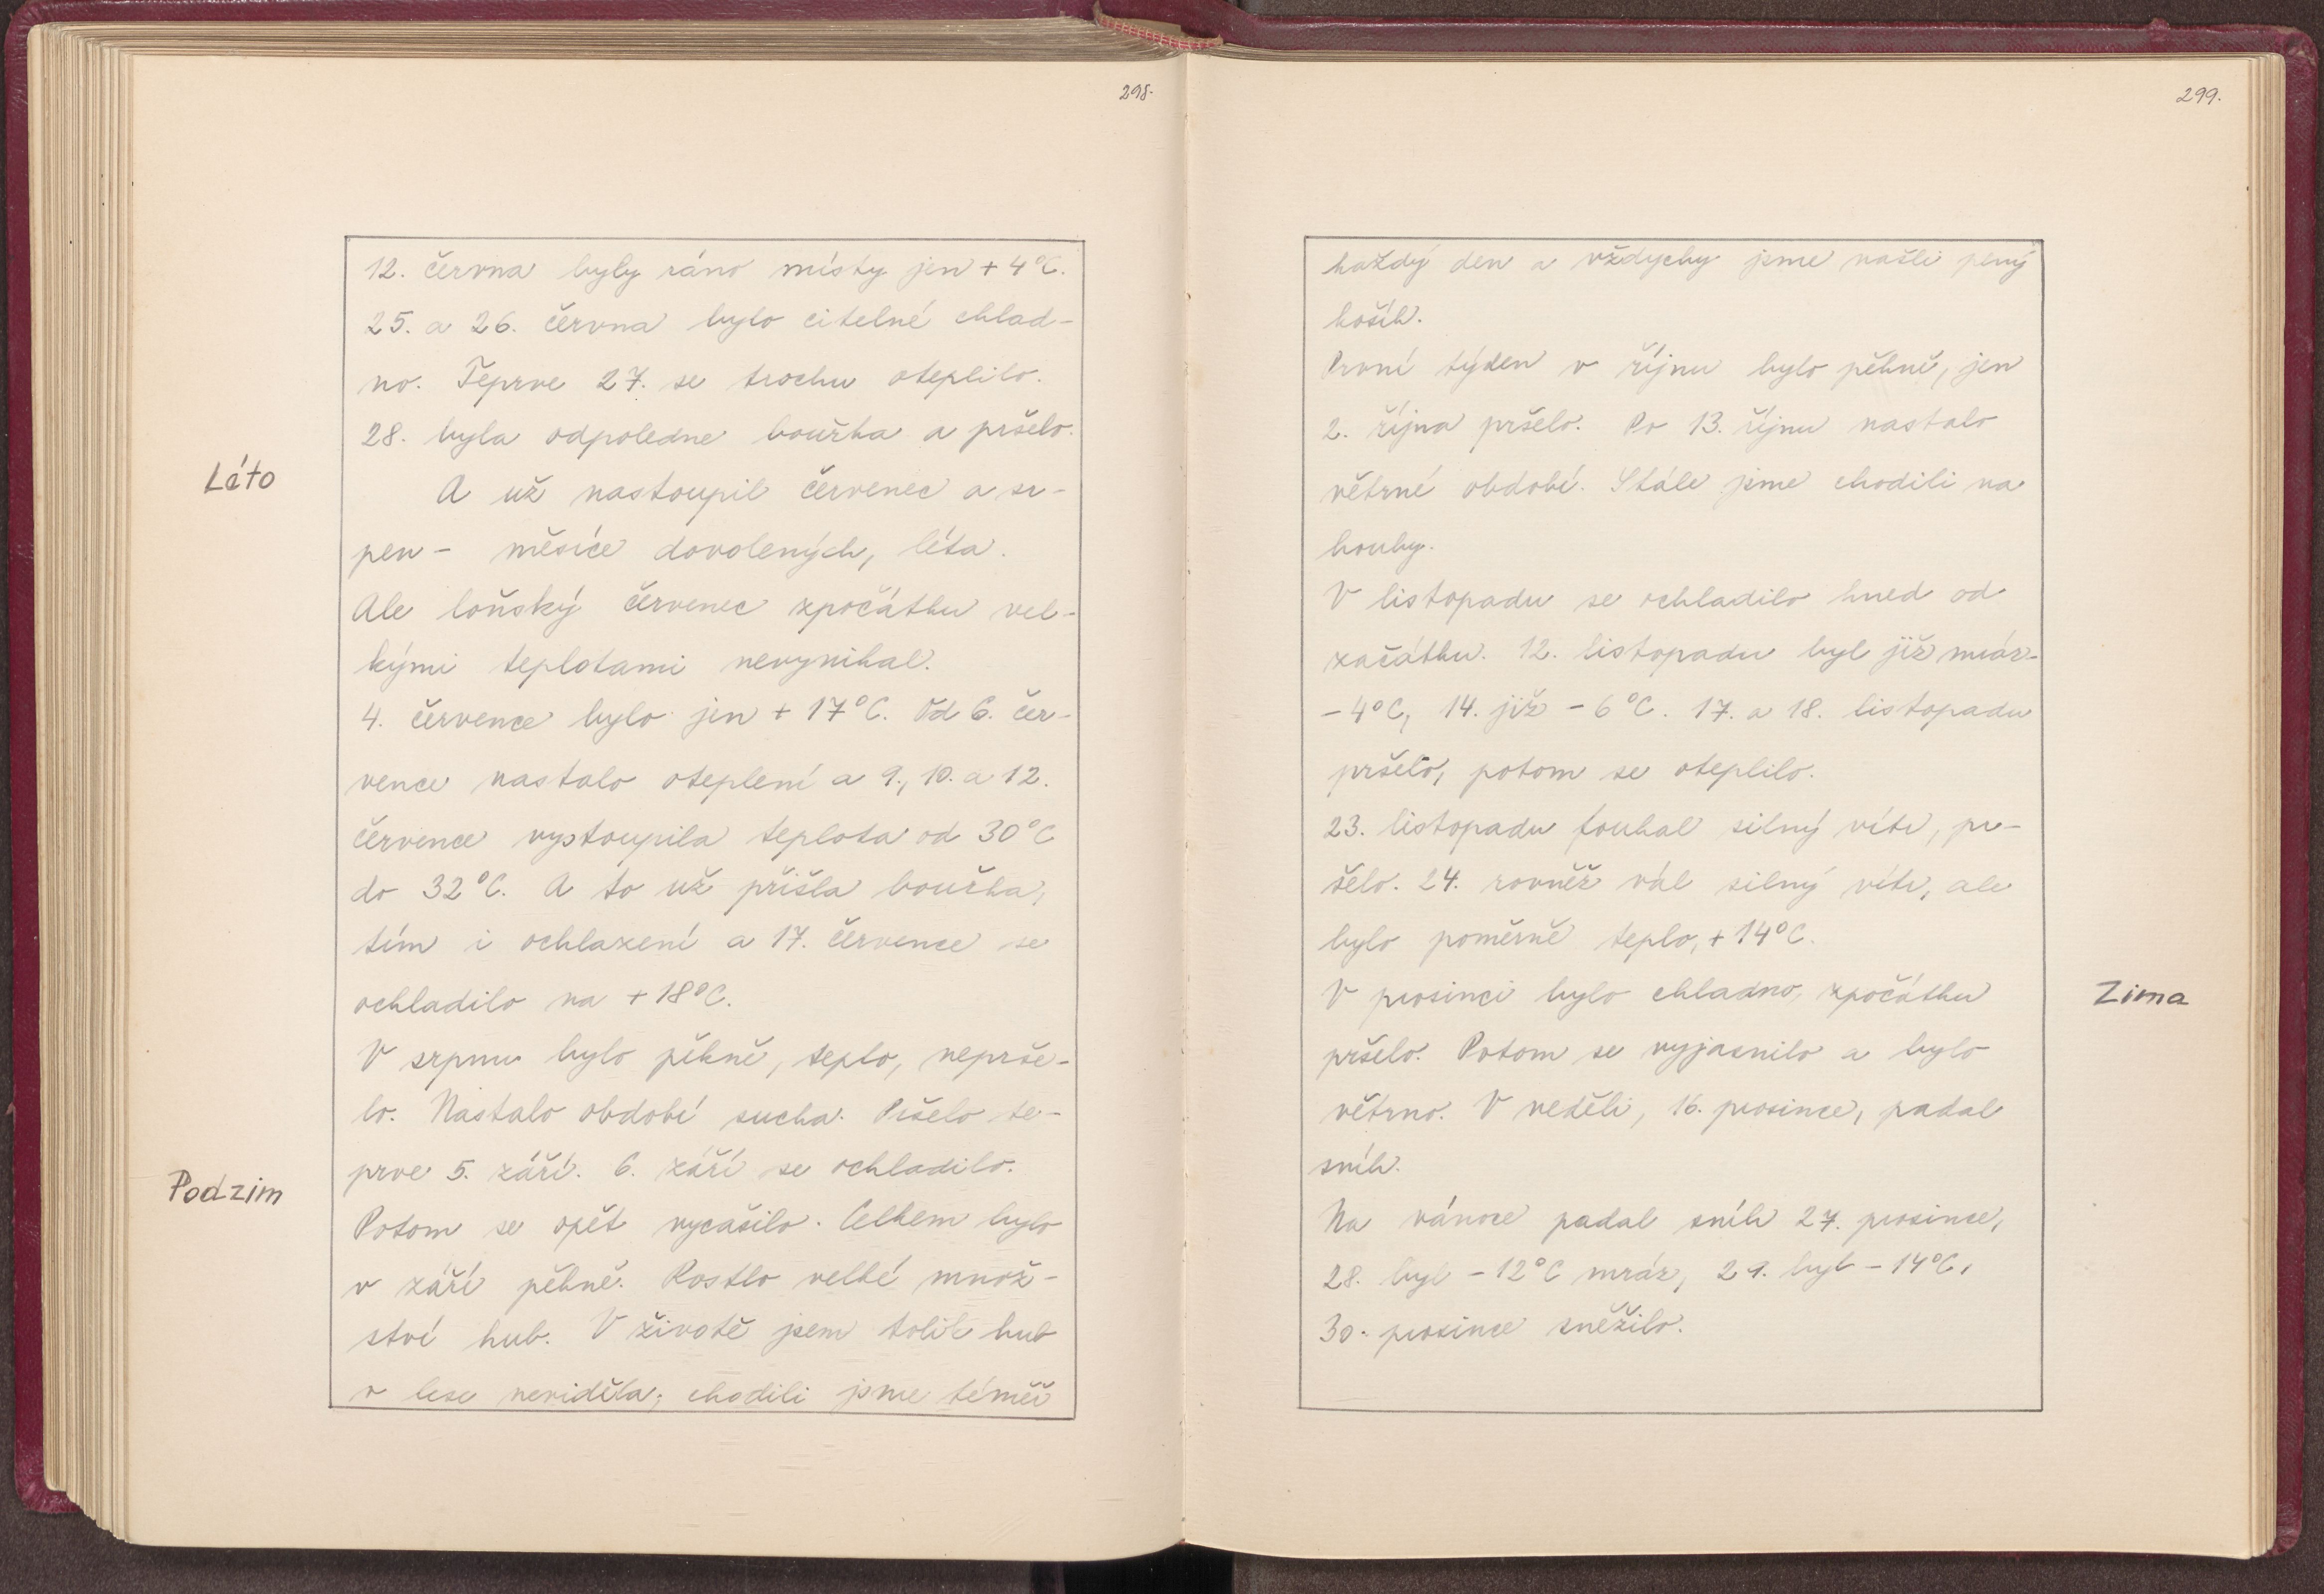 298.
12. června byly ráno místy jen + 4°C.
25. a 26. června bylo citelné chlad-
no. Teprve 27. se trochu oteplilo.
28. byla odpoledne bouřka a pršelo.
Léto
A už nastoupil červenec a sr-
pen - měsíce dovolených, léta.
Ale loňský červenec zpočátku vel-
kými teplotami nevynikal.
4. července bylo jen + 17°C. Od 6. čer-
vence nastalo oteplení a 9., 10. a 12.
července vystoupila teplota od 30°C
do 32°C. A to už přišla bouřka,
tím i ochlazení a 17. července se
ochladilo na + 18°C.
V srpnu bylo pěkně, teplo, neprše-
lo. Nastalo období sucha. Pršelo te-
prve 5. září. 6. září se ochladilo.
Podzim
Potom se opět vycasilo. Celkem bylo
v září pěkně. Rostlo velké množ-
ství hub. V životě jsem tolik hub
v lese neviděla; chodili jsme téměř
299.
každý den a vždycky jsme našli plný
košík.
První týden v říjnu bylo pěkně, jen
2. října pršelo. Po 13. říjnu nastalo
větrné období. Stále jsme chodili na
houby.
V listopadu se ochladilo hned od
začátku. 12. listopadu byl již mráz-
- 4°C, 14. již - 6°C. 17. a 18. listopadu
pršelo, potom se oteplilo.
23. listopadu foukal silný vítr, pr-
šelo. 24. rovněž vál silný vítr, ale
bylo poměrně teplo, + 14°C.
V prosinci bylo chladno, zpočátku
Zima
pršelo. Potom se vyjasnilo a bylo
větrno. V neděli, 16. prosince, padal
sníh.
Na vánoce padal sníh 27. prosince,
28. byl - 12°C mráz, 29. byl - 14°C,
30. prosince sněžilo.